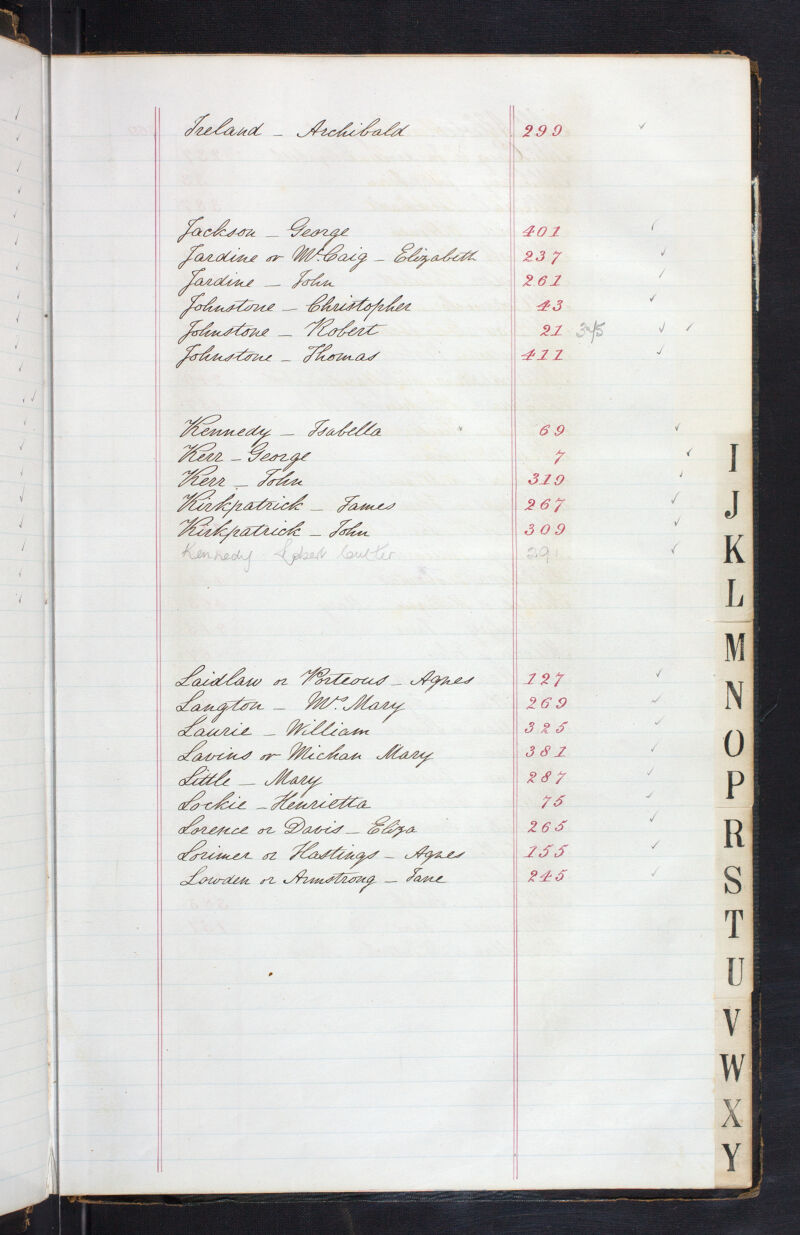 Ireland - Archibald 299
Jackson - George 401
Jardine or McCaig - Elizabeth 237
Jardine - John 261
Johnstone - Christopher 43
Johnstone - Robert 21 345
Johnstone - Thomas 411
Kennedy - Isabella 69
Kerr - George 7
Kerr - John 319
Kirkpatrick - James 267
Kirkpatrick - John 309
Kennedy Robert 291
Laidlaw or Porteous - Agnes 127
Langton - Mrs Mary 269
Laurie - William 325
Lavins or Michan Mary 381
Little - Mary 287
Lockie - Henrietta 75
Lorence or Davis - Eliza 265
Lorimer or Hastings - Agnes 155
Lowden or Armstrong - Jane 245
I
J
K
L
M
N
O
P
R
S
T
U
V
W
X
Y